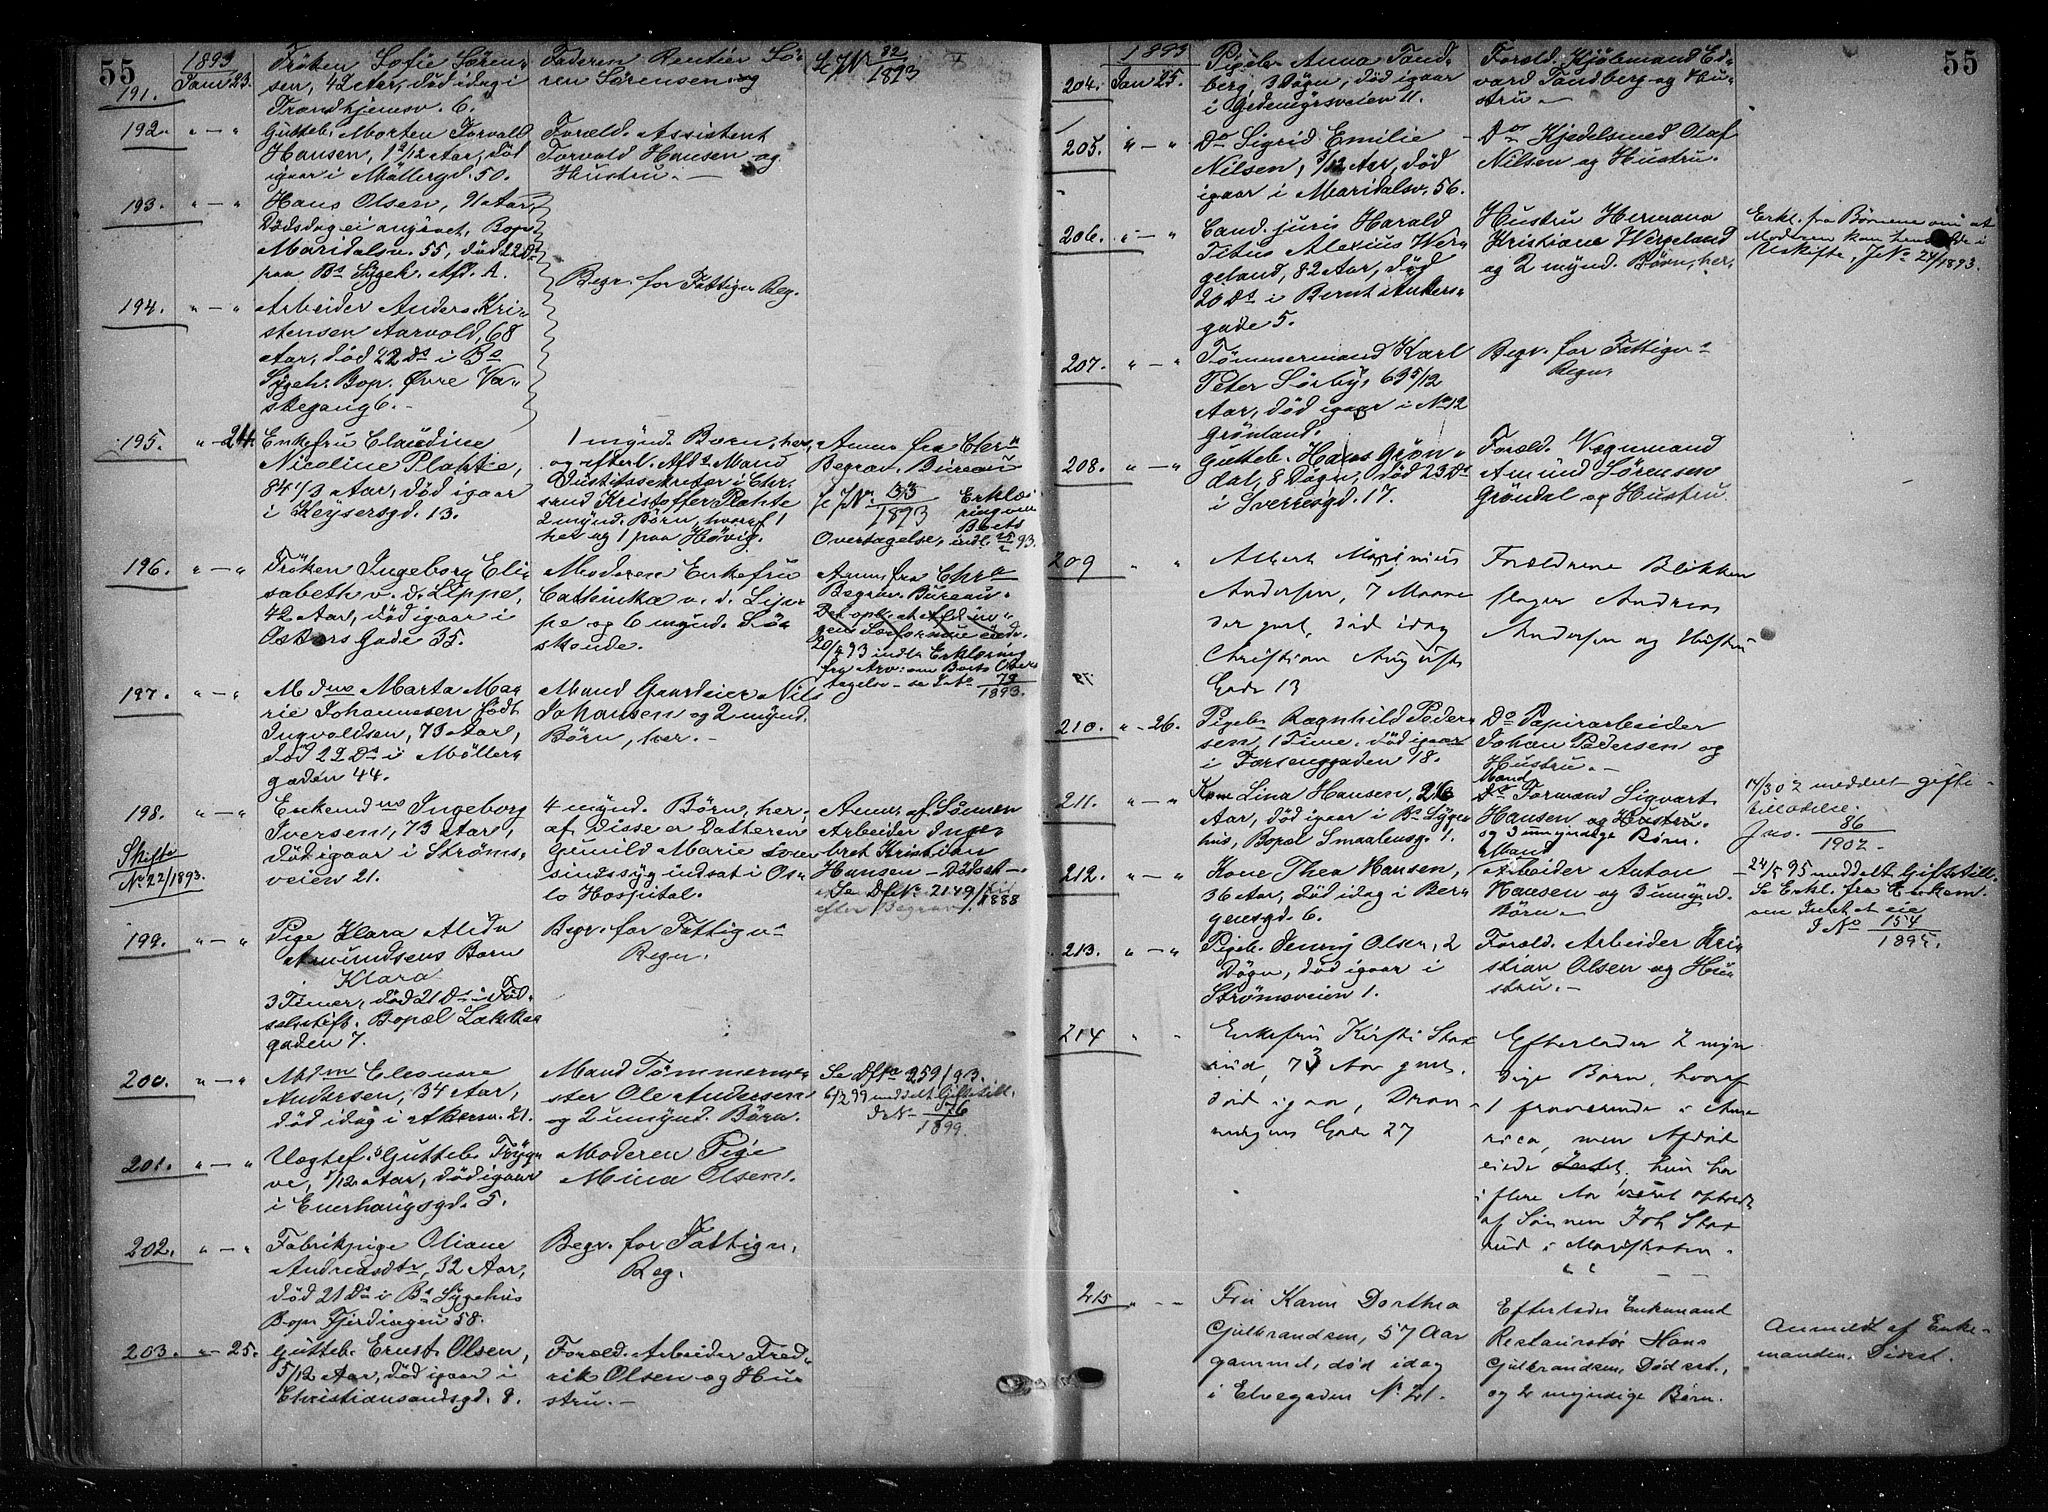 55
1893
191. Jan 23.
Frøken Sofie Søren-
sen, 42 Aar, død idag i
Trondhjemsv. 6.
Faderen Rentier Sø-
ren Sørensen
Se JN 82/1893
192. " — "
Gutteb. Morten Torvald
Hansen, 1 2/12 Aar, død
igaar i Møllergd. 50.
Foræld. Assistent
Torvald Hansen og
Hustru. —
193. " — "
Hans Olsen, 91 Aar,
Dødsdag ei angivet, Bop.
Maridalsv. 55, død 22 Ds
paa Bs Sygeh. Afd. A.
Begr. for Fattign. Reg.
194. " — "
Arbeider Anders Kri-
stensen Aarvold, 68
Aar, død 22 Ds i Bs
Sygeh. Bop. Øvre Va-
skegang 6. —
195. " — 24.
Enkefru Claudine
Nicoline Plahte,
84 1/3 Aar, død igaar
i Keysersgd. 13.
1 mynd. Barn, her,
og efterl. Afd. Mand
Justitssekretær i Chr.
sund Kristoffer Plahte
2 mynd. Børn, hvoraf 1
her og 1 paa Høvig.
Anm. fra Chr.
Begrav. Bureau
Se JNo 33/1893
Erklæ-
ring om
Boets
Overtagelse, indl. 93.
196. " — "
Frøken Ingeborg Eli-
sabeth v. d. Lippe,
42 Aar, død igaar i
Oskars Gade 35.
Moderen Enkefru
Cathinka v. d. Lip-
pe og 6 mynd. Sø-
skende.
Anm. fra Chra
Begrav. Bureau.
20/4 93 indl. Erklæring
fra Arv. om Boets Over-
tagelse — se JNo 79/1893.
197. " — "
Mdus Marta Ma-
rie Johannesen født
Ingvoldsen, 73 Aar,
død 22 Ds i Møller-
gaden 44.
Mand Gaardeier Nils
Johansen og 2 mynd.
Børn, her. —
198. " — "
Skifte
No 22/1893.
Enkemdus Ingeborg
Iversen, 73 Aar,
død igaar i Strøms-
veien 21.
4 mynd. Børn, her,
af disse er Datteren
Gunild Marie som
sindssyg indsat i Os-
lo Hospital.
Anm. af Sønnen
Arbeider Inge-
bret Kristian
Hansen — Dødsat-
Se Df. No 2149/1888
efter Begrav.
199. " — "
Pige Klara Alida
Amundsens Barn
Klara
3 Timer, død 21 Ds i Fød-
selsstift. Bopæl Lakke-
gaden 7.
Begr. for Fattign.
Regn.
200. " — "
Mdm Eleonore
Andersen, 34 Aar,
død idag i Akersv. 21.
Mand Tømmerme-
ster Ole Andersen
og 2 umynd. Børn.
Se Dfno 259/93.
6/2 99 meddelt Giftetill.
JNo 76/1899.
201. " — "
Uægtef. Gutteb. Tryg-
ve, 1/12 Aar, død igaar
i Enerhaugsgd. 5.
Moderen Pige
Mina Olsen.
202. " — "
Fabrikpige Oliane
Andreasdtr, 32 Aar,
død 21 Ds i Bs Sygehus
Bop. Fjerdingen 58.
Begr. for Fattign.
Reg.
203. " — 25.
Gutteb. Ernst Olsen,
5/12 Aar, død igaar i
Christiansandsgd. 8.
Foræld. Arbeider Fred-
rik Olsen og Hu-
stru. —
55
1893
204. Jan 25.
Pigeb. Anna Tand-
berg, 3 Døgn, død igaar
i Gedemyrsveien 11.
Foræld. Kjøbmand Ed-
vard Tandberg og Hu-
stru. —
205. " — "
Do Sigrid Emilie
Nilsen, 3/12 Aar, død
igaar i Maridalsv. 56.
Do Kjedelsmed Olaf
Nilsen og Hustru.
206. " — "
Cand. juris Harald
Titus Alexius Wer-
geland, 82 Aar, død
20 Ds i Bernt Ankers-
gade 5.
Hustru Hermana
Kristiane Wergeland
og 2 mynd. Børn, her.
Erkl. fra Børnene om at
Moderen kan hensidde i
Uskifte, JNo 24/1893.
207. " — "
Tømmermand Karl
Peter Sørby, 63 5/12
Aar, død igaar i No 12
Grønland.
Begr. for Fattign.
Regn.
208. " — "
Gutteb. Hans Grøn-
dal, 8 Døgn, død 23 Ds
i Sverresgd. 17.
Foræld. Vognmand
Amund Sørensen
Grøndal og Hustru.
209 " "
Albert Marinius
Andersen, 7 Maane
der gml, død idag
Christian Augusts
Gade 13
Forældrene Blikken
slager Andreas
Andersen og Hustru
210. " — 26.
Pigeb. Ragnhild Peder-
sen, 1 Time, død igaar
i Torsenggaden 18.
Do Papirarbeider
Johan Pedersen og
Hustru. —
211. " — "
Kone Lina Hansen, 26
Aar, død igaar i Bs Syge-
hus, Bopæl Smaalensgd. 1.
Mand
Do Formand Sigvart
Hansen og Hustru.
og 3 umyndige Børn.
14/3 02 meddelt gifte-
tilladelse.
Jno. 86/1902.
212. " — "
Kone Thea Hansen,
36 Aar, død idag i Ber-
gensgd. 6.
Mand
Arbeider Anton
Hansen og 3 umynd.
Børn. —
24/5 95 meddelt Giftetill.
Se Erkl. fra Enkem.
om Intet at eie
JNo 154/1895.
213. " — "
Pigeb. Jenny Olsen, 2
Døgn, død igaar i
Strømsveien 1.
Foræld. Arbeider Kri-
stian Olsen og Hu-
stru. —
214 " "
Enkefru Kirsti Stax
rud, 73 Aar gml.
død igaar, Dram-
mensgens Gade 27
Efterlader 2 myn
dige Børn, hvoraf
1 fraværende i Ame
rica, men Afdøde
eiede Intet, hun har
i flere Aar været opholdt
af Sønnen Joh Stax
rud i Maristuen.
215 " — "
Fru Karen Dorthea
Gulbrandsen, 57 Aar
gammel, død idag
i Elvegaden No 21.
Efterlader Enkemand
Restauratør Hans
Gulbrandsen, Dødsat.,
og 2 myndige Børn.
Anmeldt af Enke-
manden. Dirst.